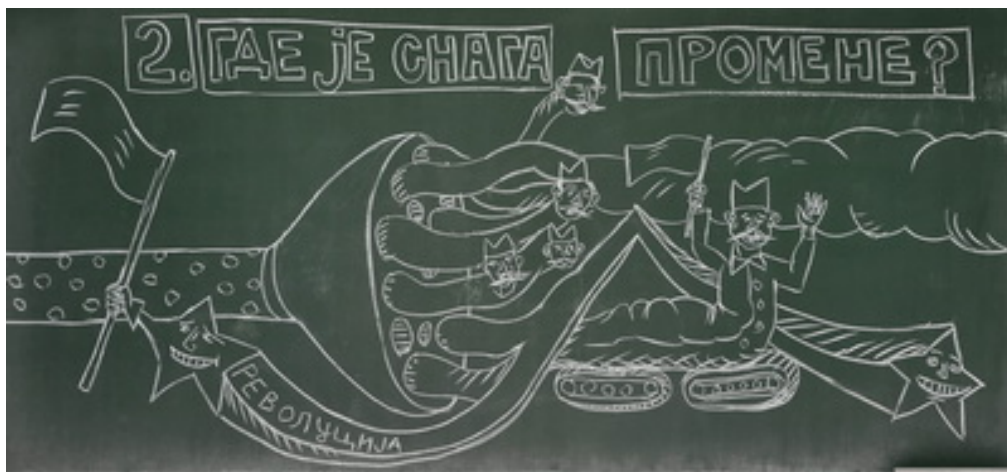 2. ГДЕ ЈЕ СНАГА ПРОМЕНЕ?
РЕВОЛУЦИЈА